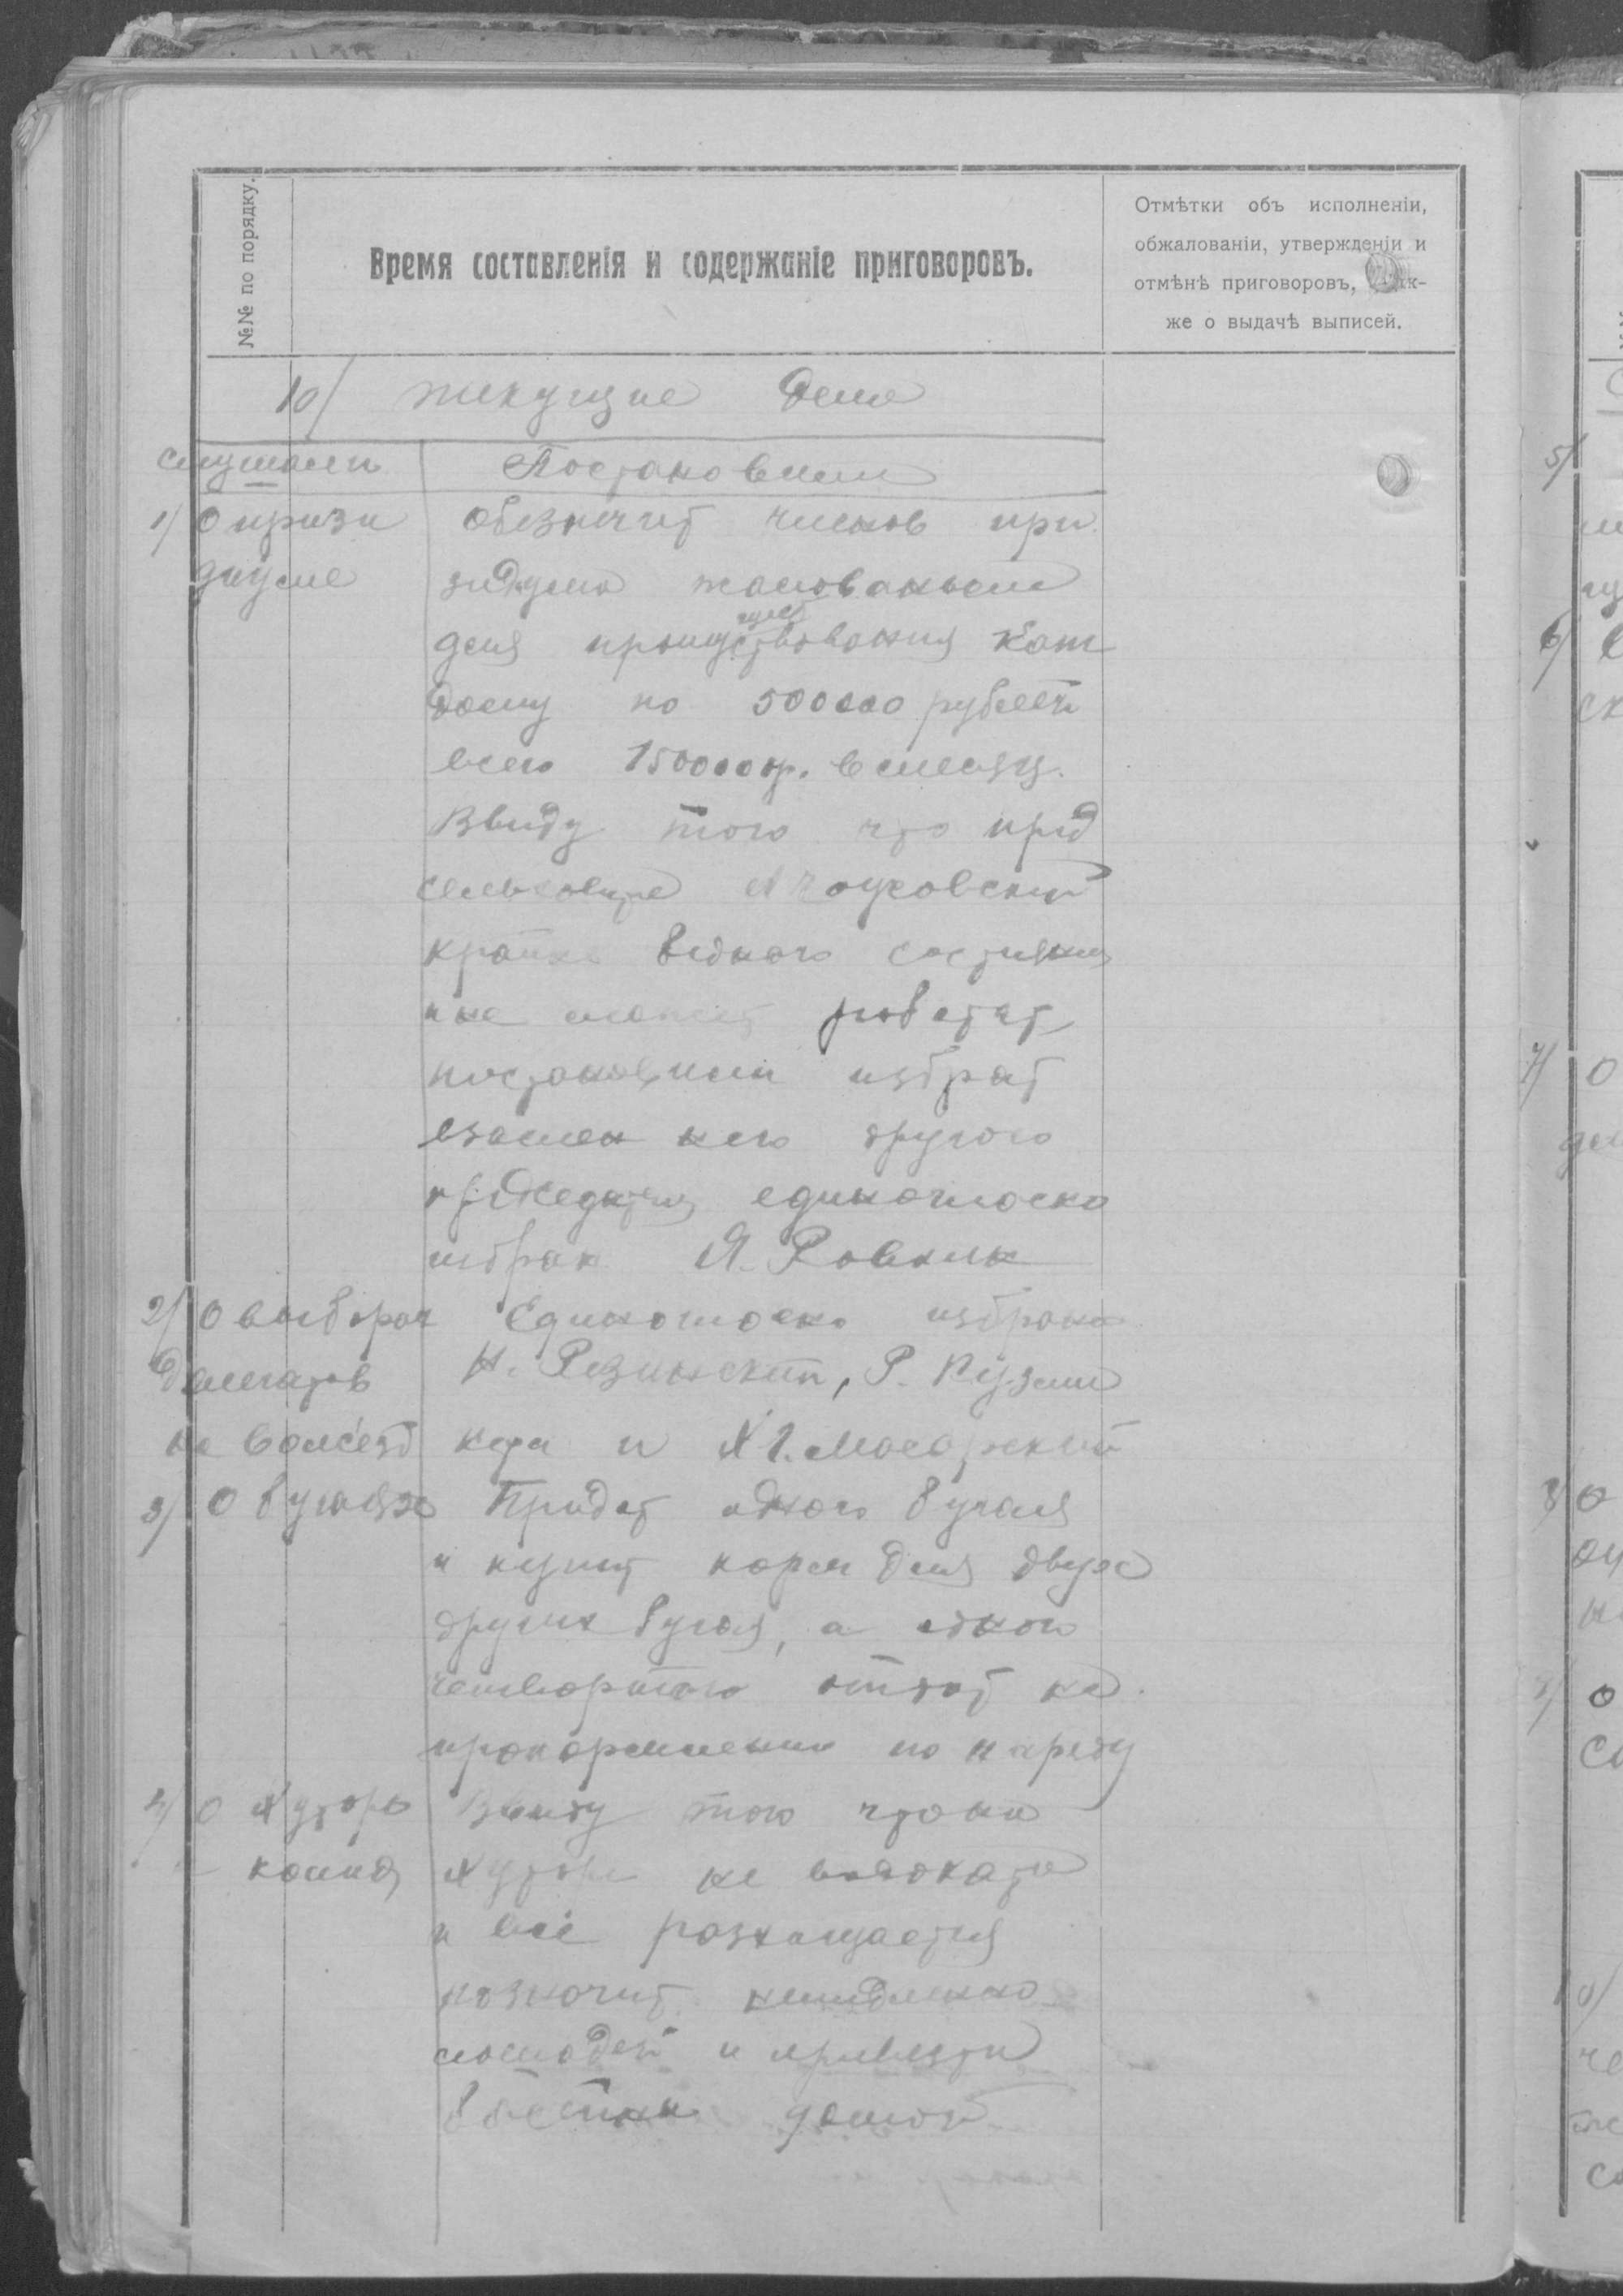 №№ по порядку.
Время составленія и содержаніе приговоровъ.
Отмѣтки объ исполненіи,
обжалованіи, утвержденіи и
отмѣнѣ приговоровъ, так-
же о выдачѣ выписей.
10/ текущие дела
слушали
Постановили
1/ О прези
диуме
Обезпечит членов при
зидиума жалованьем
для каж
дому по 500000 рублей
всего 1500000р. в месяц.
Ввиду того что пред
сельсовета
крайне бедного состояния
и не может работат
постановили избрат
взамен него другого
председателя единогласно
избран Я. Ровник
2/ О выборах
делегатов
на волсезд
Единогласно избрани
Н. Резинский, Р. Кузми
и
3/ О бугаях
Придат одного бугая
и купит корм для двух
других бугая, а одного
четвертого отдат на
прокормление по наряду
4/ О хуторе
Ввиду того что на
хуторе не
и всё расхищается
назначит немедленно
лошадей и привезти
домой